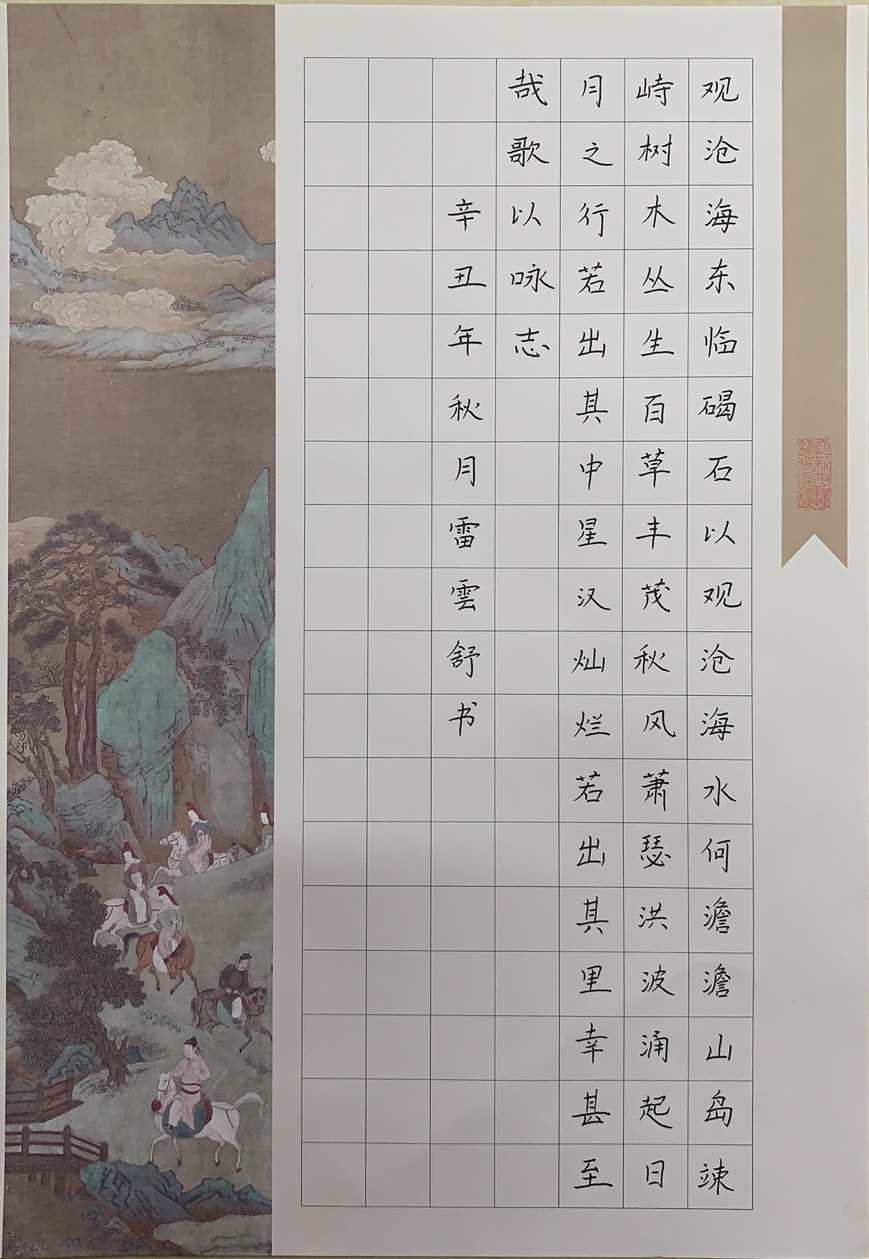 观沧海东临碣石以观沧海水何澹澹山岛竦
峙树木丛生百草丰茂秋风萧瑟洪波涌起日
月之行若出其中星汉灿烂若出其里幸甚至
哉歌以咏志
辛丑年秋月雷雲舒书